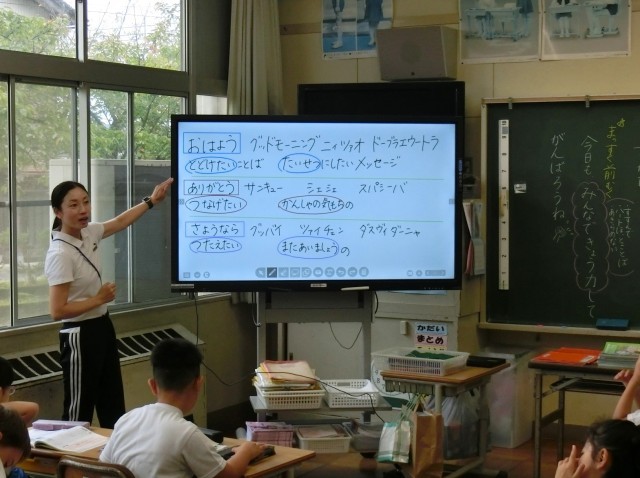 おはよう グッドモーニング ニィツァオ ドーブラエウートラ
とどけたい ことば たいせつにしたいメッセージ
ありがとう サンキュー シェシェ スパシーバ
つなげたい かんしゃの気もちの
さようなら グッバイ ツァイチェン ダスヴィダーニャ
つたえたい またあいましょうの
今日も みんなできょう力して
がんばろうね。
かだい
まとめ